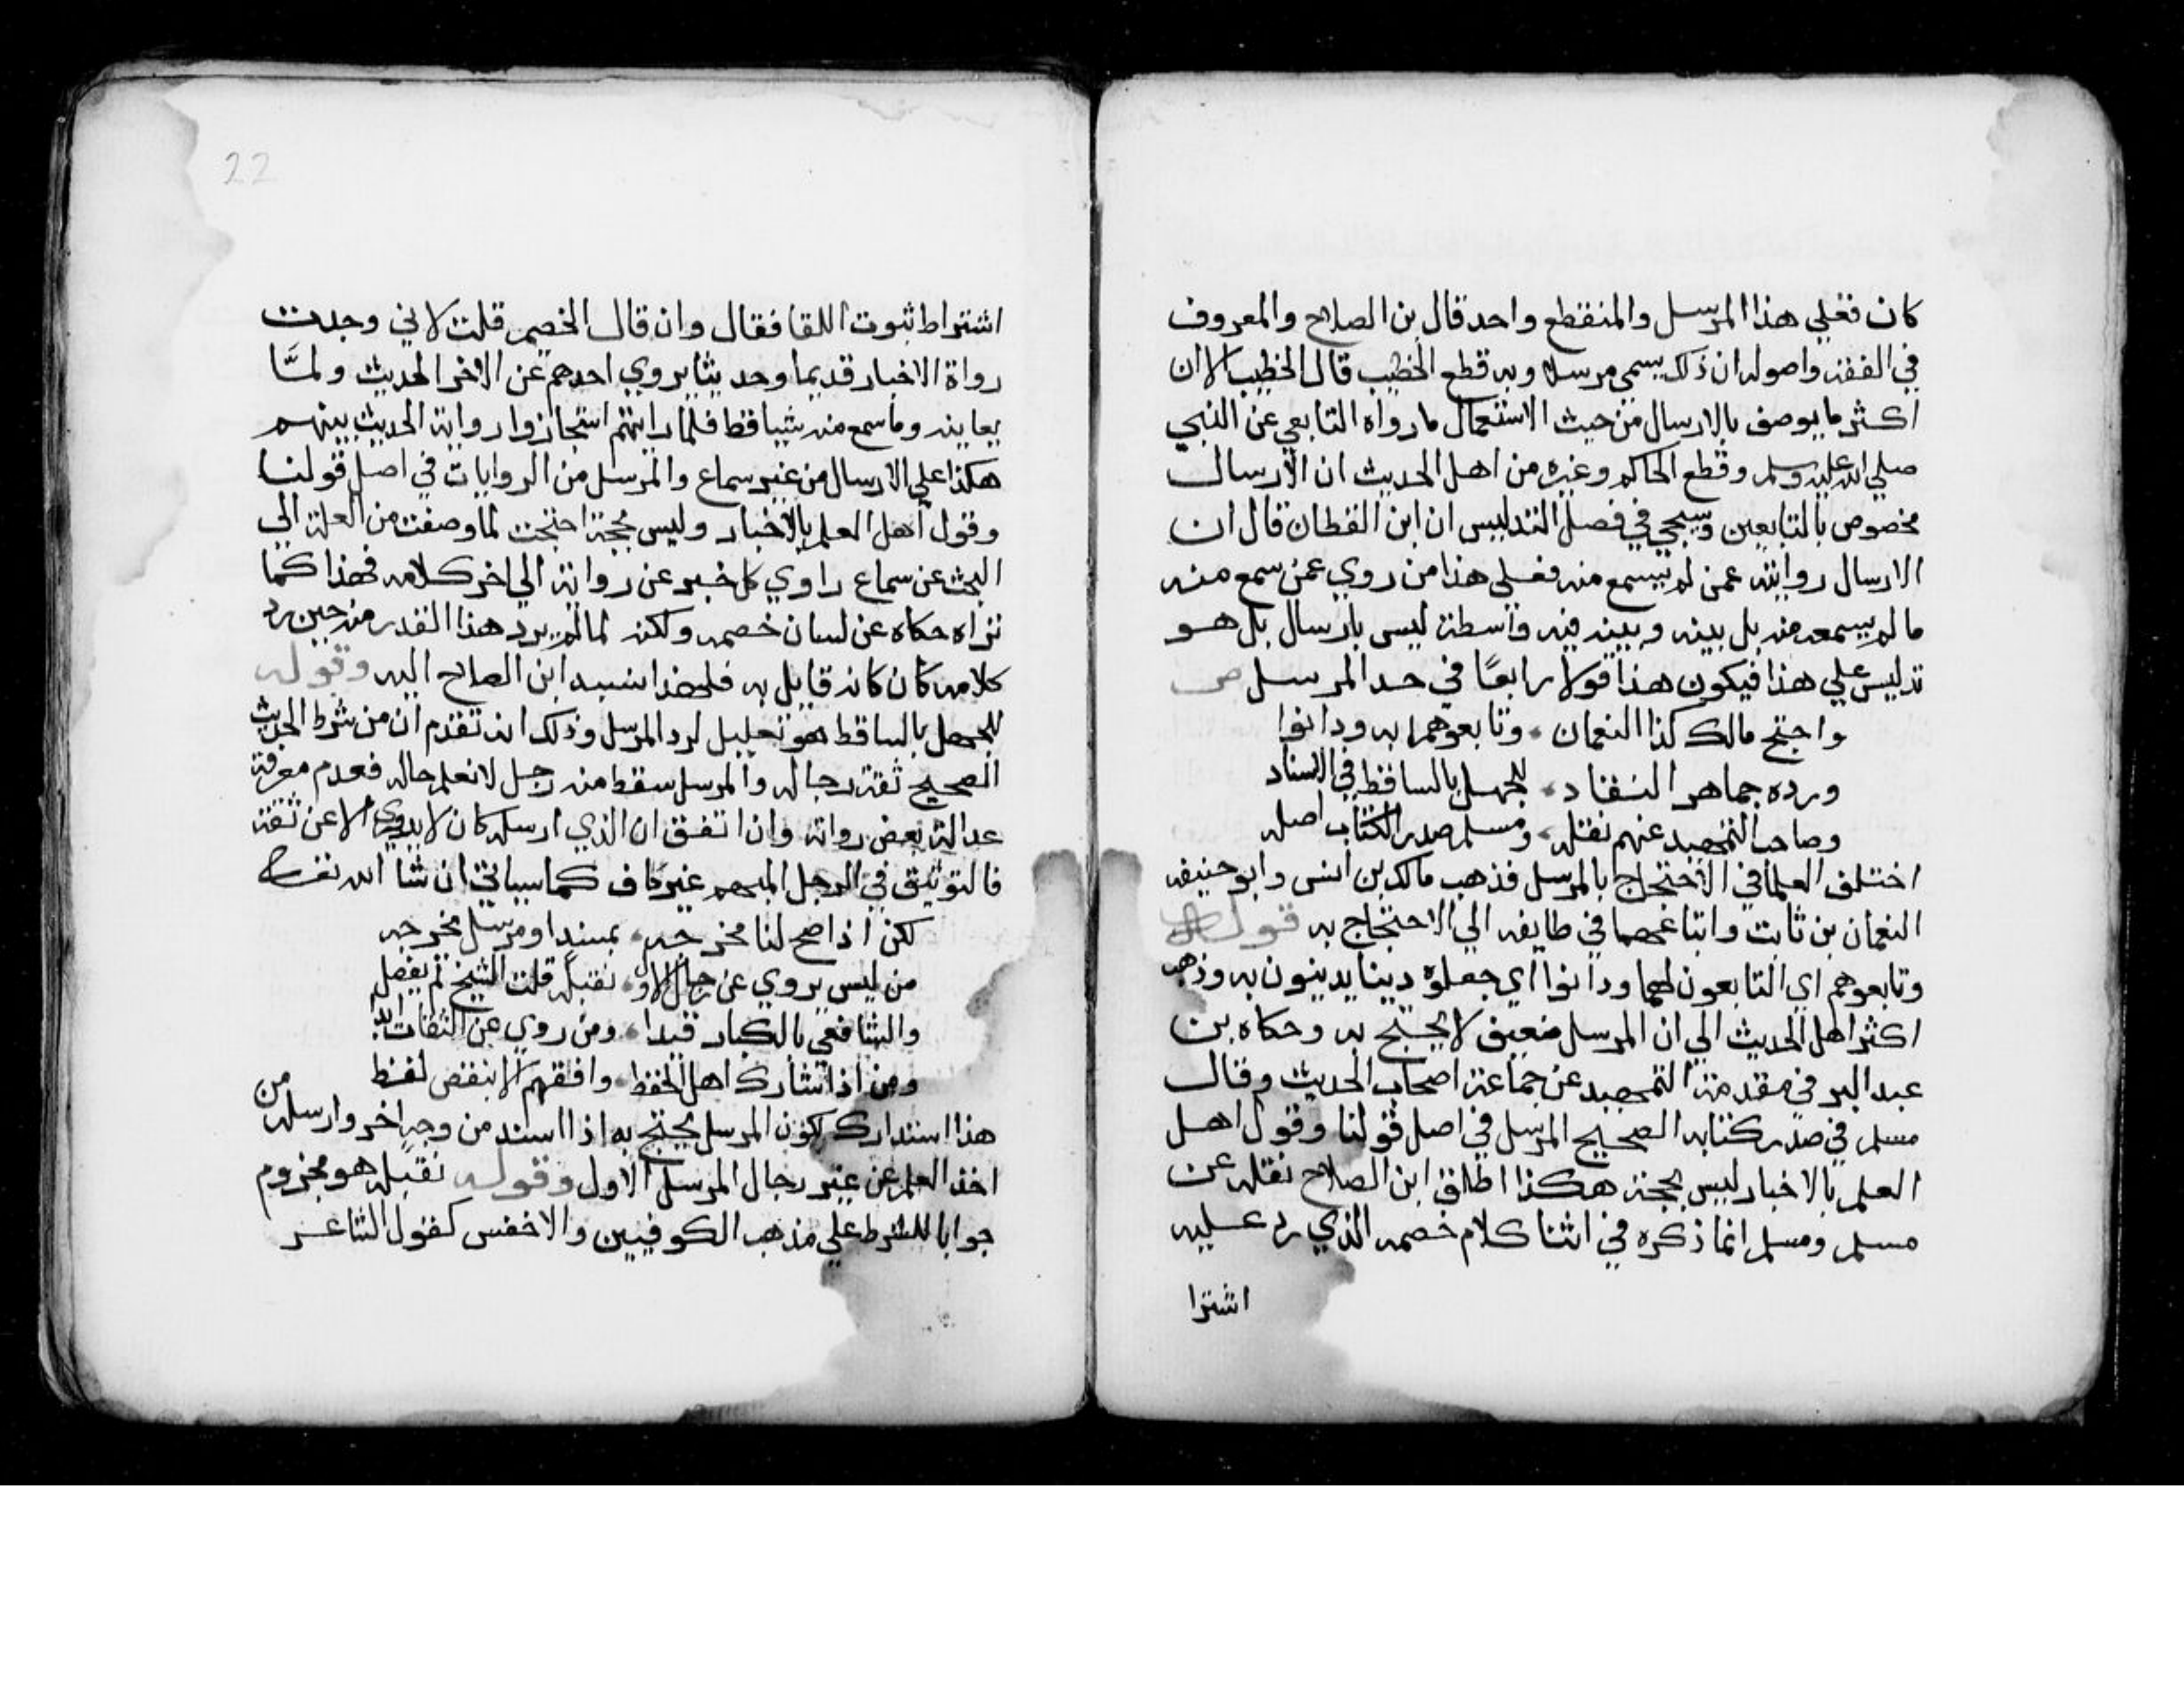 كان فعلي هذا المرسل والمنقطع واحد قال بن الصلاح والمعروف
في الفقه واصوله ان ذلك يسمي مرسلا وبه قطع الخطيب قال الخطيب الا ان
اكثر ما يوصف بالارسال من حيث الاستعمال ما رواه التابعي عن النبي
صلي الله عليه وسلم وقطع الحاكم وغيره من اهل الحديث ان الارسال
مخصوص بالتابعين وسيجي في فصل التدليس ان ابن القطان قال ان
الارسال روايته عمن لم يسمع منه فعلي هذا من روي عمن سمع منه
ما لم يسمعه منه بل بينه وبينه فيه واسطة ليس بارسال بل هو
تدليس علي هذا فيكون هذا قولا رابعًا في حد المرسل ص
واحتج مالك كذا النعمان وتابعوهما به ودانوا
ورده جماهر النقاد للجهل بالساقط في الاسناد
وصاحب التمهيد عنهم نقله ومسلم صدر الكتاب اصله
اختلف العلما في الاحتجاج بالمرسل فذهب مالك بن انس وابو حنيفه
النعمان بن ثابت واتباعهما في طايفه الي الاحتجاج به قوله
وتابعوهم اي التابعون لهما ودانوا اي جعلوه دينا يدينون به وذهب
اكثر اهل الحديث الي ان المرسل ضعيف لا يحتج به وحكاه بن
عبد البر في مقدمة التمهيد عن جماعة اصحاب الحديث وقال
مسلم في صدر كتابه الصحيح المرسل في اصل قولنا وقول اهل
العلم بالاخبار ليس بحجة هكذا اطلق ابن الصلاح نقله عن
مسلم ومسلم انما ذكره في اثنا كلام خصمه الذي رد عليه
اشترا
22
اشتراط ثبوت اللقا فقال وان قال الخصم قلت لاني وجدت
رواة الاخبار قديما وحديثا يروي احدهم عن الاخر الحديث ولمَّا
يعاينه وما سمع منه شيا قط فلما رايتهم استجازوا رواية الحديث بينهم
هكذا علي الارسال من غير سماع والمرسل من الروايات في اصل قولنا
وقول اهل العلم بالاخبار وليس بحجة احتجت لما وصفت من العلة الي
البحث عن سماع راوي كل خبر عن رواية الي اخر كلامه فهذا كما
تراه حكاه عن لسان خصمه ولكنه لما لم يرد هذا القدر منه حين رد
كلامه كان كانه قايل به فلهذا نسبه ابن الصلاح اليه وقوله
للجهل بالساقط هو تعليل لرد المرسل وذلك انه تقدم ان من شرط الحديث
الصحيح ثقة رجاله والمرسل سقط منه رجل لا نعلم حاله فعدم معرفة
عدالة بعض رواته وان اتفق ان الذي ارسله كان لا يروي الا عن ثقة
فالتوثيق في الرجل المبهم غير كاف كما سياتي ان شا الله تعالى
لكن اذا صح لنا مخرجه بمسند او مرسل يخرجه
من ليس يروي عن رجال الاول نقبله قلت الشيخ لم يفصل
والشافعي بالكبار قيدا ومن روي عن الثقات ابدا
ومن اذا شارك اهل الحفظ وافقهم الا بنقص لفظ
هذا استدارك لكون المرسل يحتج به اذا اسند من وجه اخر وارسله من
اخذ العلم عن غير رجال المرسل الاول وقوله نقبله هو مجزوم
جوابا للشرط علي مذهب الكوفيين والاخفش كقول الشاعر